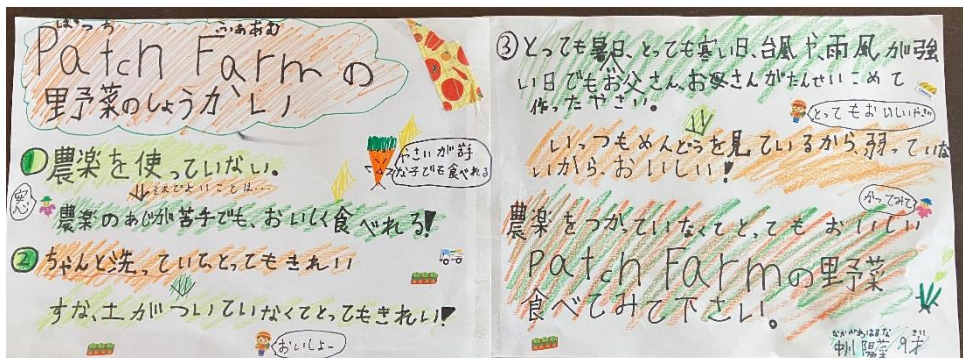 ぱっち ふぁあむ
Patch Farmの
野菜のしょうかい
① 農楽を使っていない。
それでよいことは…
安心
農楽のあじが苦手でも、おいしく食べれる!
やさいが苦手
な子でも食べれる
② ちゃんと洗っていてとってもきれい
すな、土がついていなくてとってもきれい!
おいしょー
③ とっても暑い日、とっても寒い日、台風や、雨風が強
い日でもお父さん、お母さんがたんせいこめて
作ったやさい。
とってもおいしいやさい
いつもめんどうを見ているから、弱っていな
いから、おいしい!
かってみて
農楽をつかっていなくてとってもおいしい
Patch Farmの野菜
食べてみて下さい。
なかがわはるな さい
中川陽菜 9才